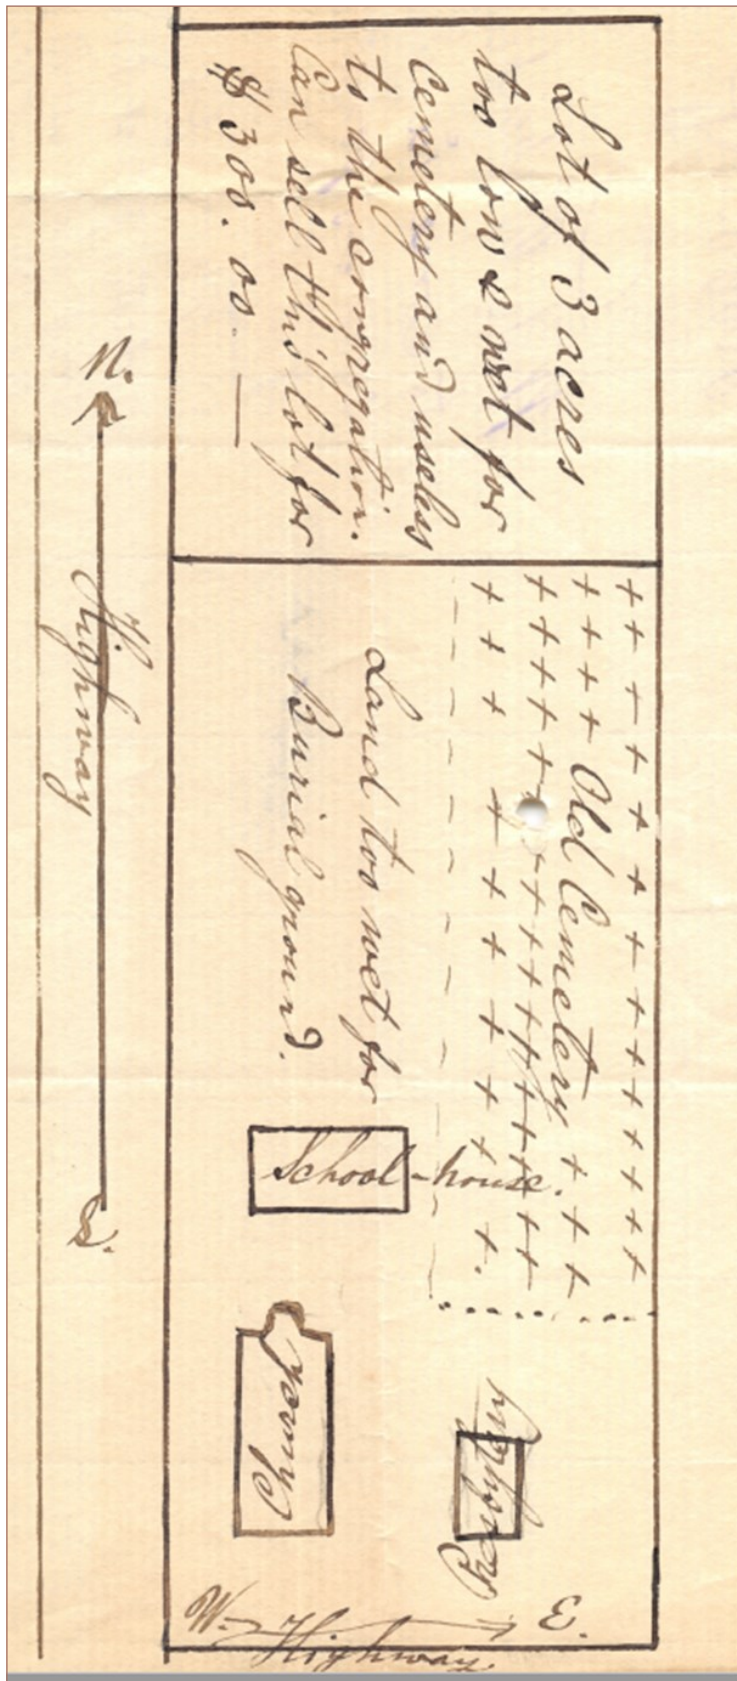 Lot of 3 acres
too low & wet for
cemetery and useless
to the congregation.
Can sell this lot for
$300.00. —
N.
Highway
S.
Old Cemetery
Land too wet for
Burial ground.
School-house.
Church
Parsonage
W. E.
Highway.